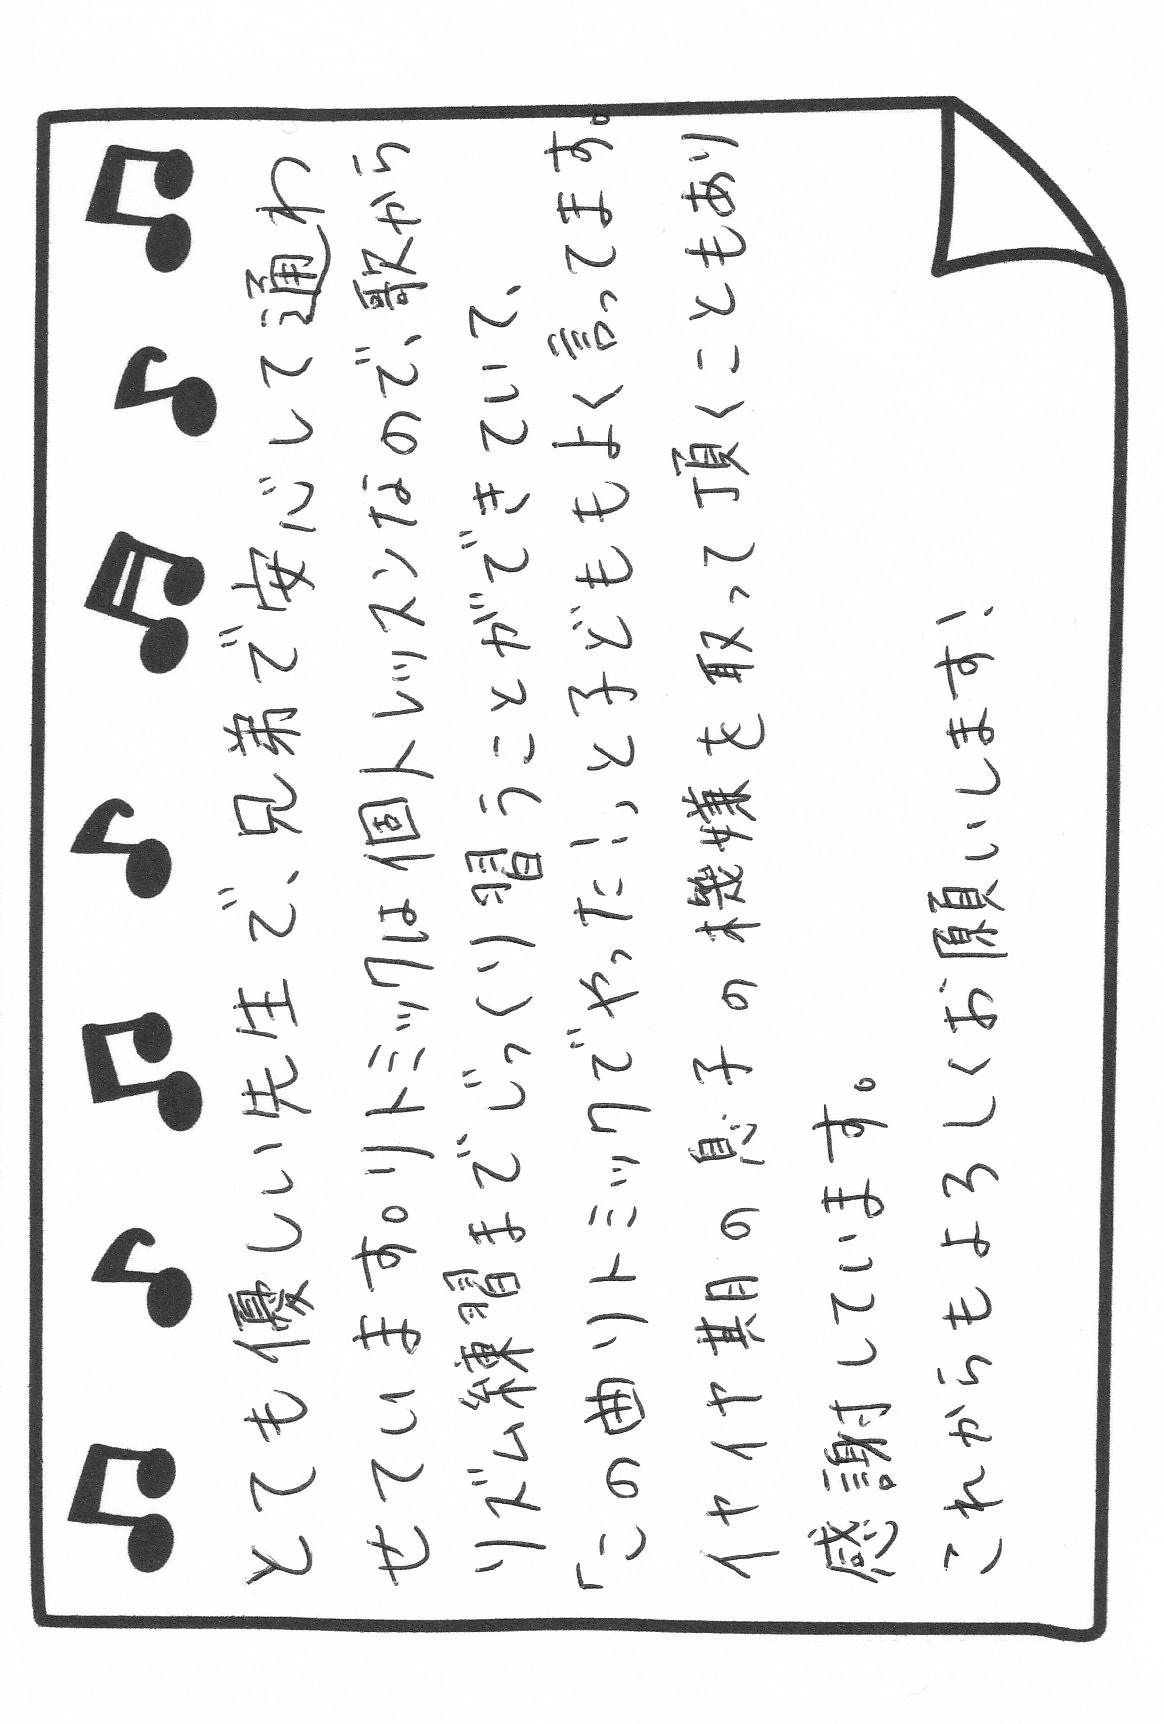 とても優しい先生で、兄弟で安心して通わ
せています。リトミックは個人レッスンなので、歌から
リズム練習までじっくり習うことができていて、
「この曲リトミックでやった!」と子どももよく言ってます。
イヤイヤ期の息子の機嫌を取って頂くこともあり
感謝しています。
これからもよろしくお願いします!